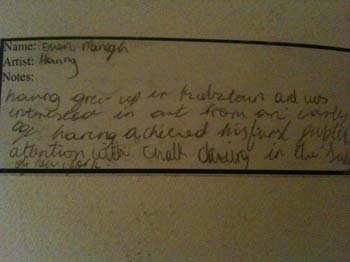 Name: Ewan Managh
Artist: Haring
Notes:
haring grew up in Kutztown and was
interested in art from an early
age haring achieved his first public
attention with chalk drawing in the Sub
of New York